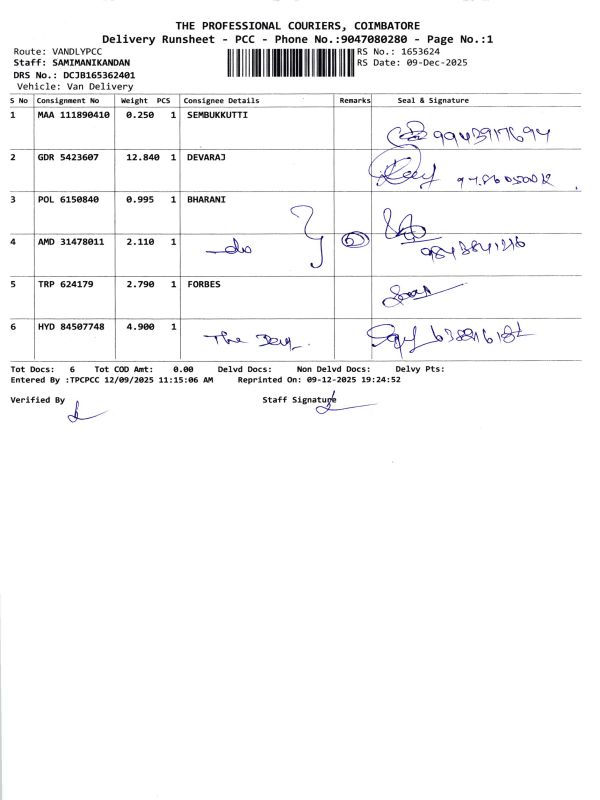 THE PROFESSIONAL COURIERS, COIMBATORE
Delivery Runsheet - PCC - Phone No.:9047080280 - Page No.:1
Route: VANDLYPCC RS No.: 1653624
Staff: SAMIMANIKANDAN RS Date: 09-Dec-2025
DRS No.: DCJB165362401
Vehicle: Van Delivery
S No Consignment No Weight PCS Consignee Details Remarks Seal & Signature
1 MAA 111890410 0.250 1 SEMBUKKUTTI
9943917694
2 GDR 5423607 12.840 1 DEVARAJ
3 POL 6150840 0.995 1 BHARANI
4 AMD 31478011 2.110 1
do 2
5 TRP 624179 2.790 1 FORBES
6 HYD 84507748 4.900 1
The
Tot Docs: 6 Tot COD Amt: 0.00 Delvd Docs: Non Delvd Docs: Delvy Pts:
Entered By :TPCPCC 12/09/2025 11:15:06 AM Reprinted On: 09-12-2025 19:24:52
Verified By Staff Signature